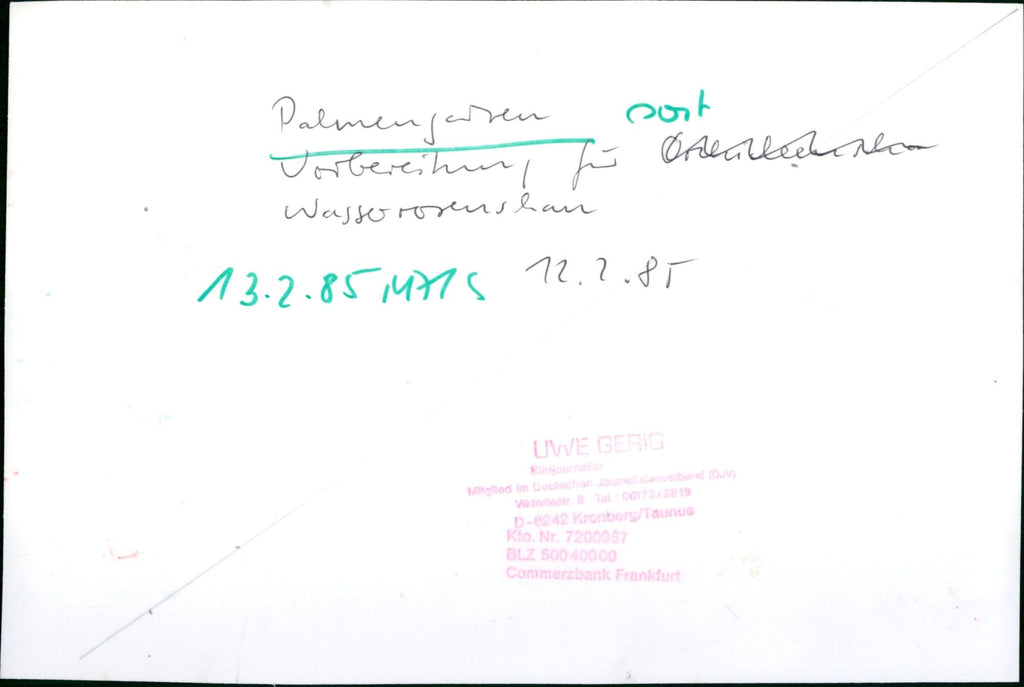 Palmengarten port
Vorbereitung für
Wasserrosenschau
13.2.85 12.2.85
UWE GERIG
Bildjournalist
Mitglied im Deutschen Journalistenverband (DJV)
Viktoriastr. 8 - Tel.: 06173/2819
D-6242 Kronberg/Taunus
Kto. Nr. 7200967
BLZ 500 400 00
Commerzbank Frankfurt